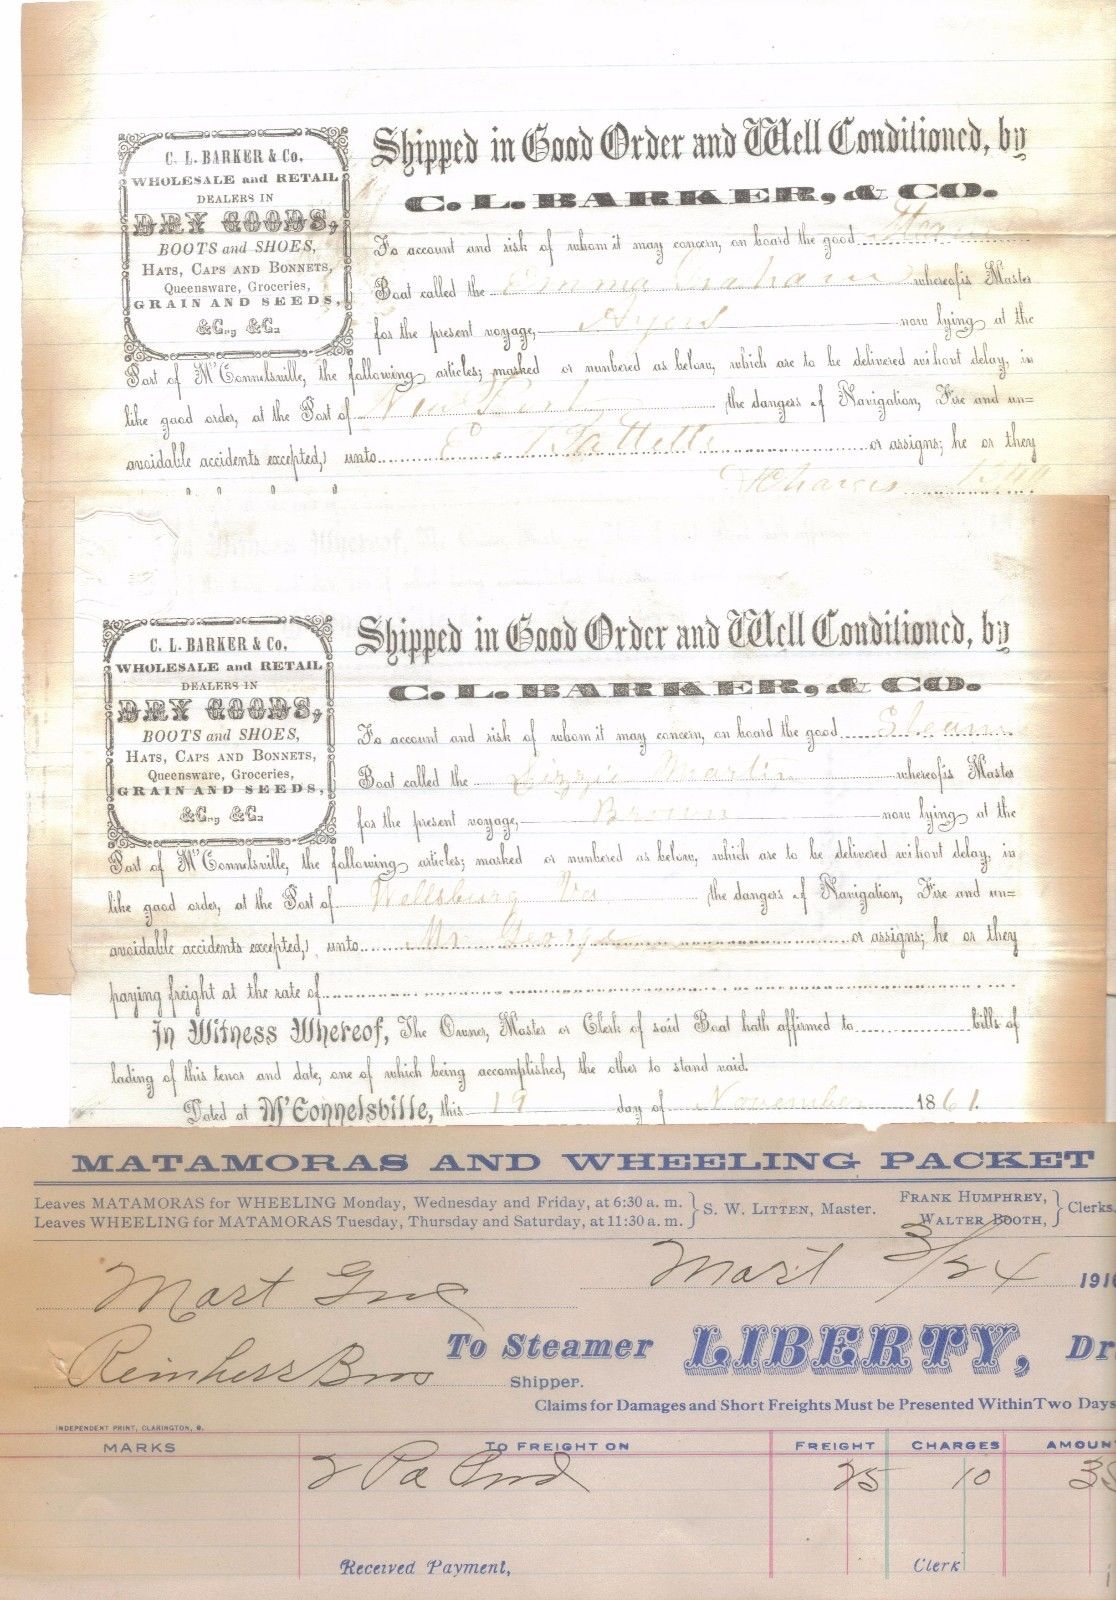 C. L. BARKER & Co.
WHOLESALE and RETAIL
DEALERS IN
DRY GOODS,
BOOTS and SHOES,
HATS, CAPS AND BONNETS,
Queensware, Groceries,
GRAIN AND SEEDS,
&C., &C.
Shipped in Good Order and Well Conditioned, by
C. L. BARKER, & CO.
To account and risk of whom it may concern, on board the good
Boat called the Emma Graham whereof is Master
for the present voyage, Ayers now lying at the
Port of M'Connelsville, the following articles; marked or numbered as below, which are to be delivered without delay, in
like good order, at the Port of New the dangers of Navigation, Fire and un=
avoidable accidents excepted,) unto E. or assigns; he or they
Charges
C. L. BARKER & Co,
WHOLESALE and RETAIL
DEALERS IN
DRY GOODS,
BOOTS and SHOES,
HATS, CAPS AND BONNETS,
Queensware, Groceries,
GRAIN AND SEEDS,
&C., &C.
Shipped in Good Order and Well Conditioned, by
C. L. BARKER, & CO.
To account and risk of whom it may concern, on board the good Steam
Boat called the Lizzie Martin whereof is Master
for the present voyage, Brown now lying at the
Port of M'Connelsville, the following articles; marked or numbered as below, which are to be delivered wihout delay, in
like good order, at the Port of Wellsburg Va the dangers of Navigation, Fire and un=
avoidable accidents excepted,) unto Mr George or assigns; he or they
paying freight at the rate of
In Witness Whereof, The Owner, Master or Clerk of said Boat hath affirmed to bills of
lading of this tenor and date, one of which being accomplished, the other to stand void.
Dated at M'Connelsville, this 19 day of November 1861.
MATAMORAS AND WHEELING PACKET
Leaves MATAMORAS for WHEELING Monday, Wednesday and Friday, at 6:30 a. m.
Leaves WHEELING for MATAMORAS Tuesday, Thursday and Saturday, at 11:30 a. m.
S. W. LITTEN, Master.
FRANK HUMPHREY,
WALTER BOOTH,
Clerks.
Mart 3/24 191
Mart
Reinherr Bros
Shipper.
To Steamer LIBERTY, Dr
Claims for Damages and Short Freights Must be Presented Within Two Days
INDEPENDENT PRINT, CLARINGTON, O.
MARKS TO FREIGHT ON FREIGHT CHARGES AMOUNT
2 25 10 35
Received Payment, Clerk